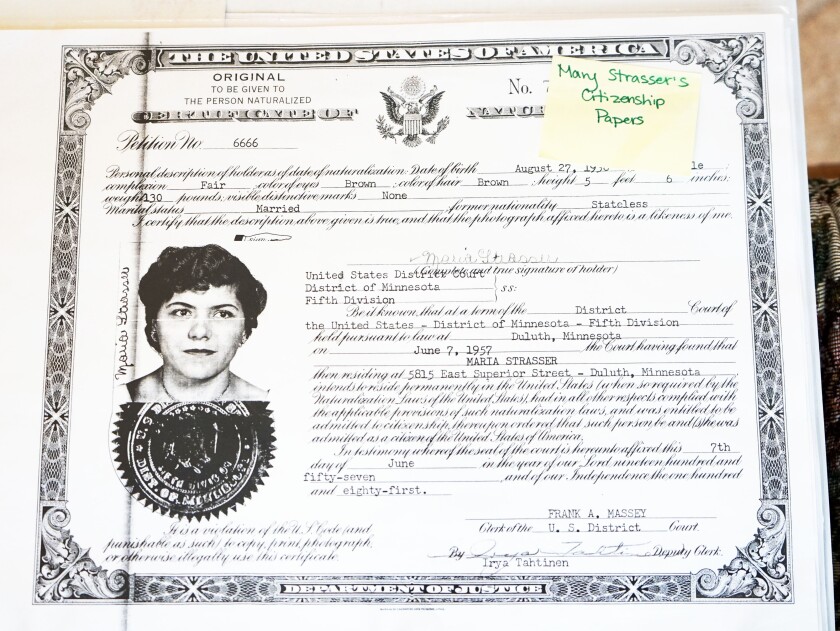 THE UNITED STATES OF AMERICA
ORIGINAL
TO BE GIVEN TO
THE PERSON NATURALIZED
No. 7
Mary Strasser's
Citizenship
Papers
CERTIFICATE OF
Petition No. 6666
Personal description of holder as of date of naturalization: Date of birth August 27, le ;
complexion Fair color of eyes Brown ; color of hair Brown ; height 5 feet 6 inches;
weight 130 pounds; visible distinctive marks None
Marital status Married former nationality Stateless
I certify that the description above given is true, and that the photograph affixed hereto is a likeness of me.
Maria Strasser
(Complete and true signature of holder)
Maria Strasser
United States District Court
District of Minnesota
Fifth Division
ss:
Be it known, that at a term of the District Court of
the United States - District of Minnesota - Fifth Division
held pursuant to law at Duluth, Minnesota
on June 7, 1957 the Court having found that
MARIA STRASSER
then residing at 5815 East Superior Street - Duluth, Minnesota
intends to reside permanently in the United States (when so required by the
Naturalization Laws of the United States), had in all other respects complied with
the applicable provisions of such naturalization laws, and was entitled to be
admitted to citizenship, thereupon ordered that such person be and (s)he was
admitted as a citizen of the United States of America.
In testimony whereof the seal of the court is hereunto affixed this 7th
day of June in the year of our Lord nineteen hundred and
fifty-seven and of our Independence the one hundred
and eighty-first.
It is a violation of the U.S. Code (and
punishable as such) to copy, print, photograph,
or otherwise illegally use this certificate.
FRANK A. MASSEY
Clerk of the U. S. District Court
By Irya Tahtinen Deputy Clerk.
Irya Tahtinen
DEPARTMENT OF JUSTICE